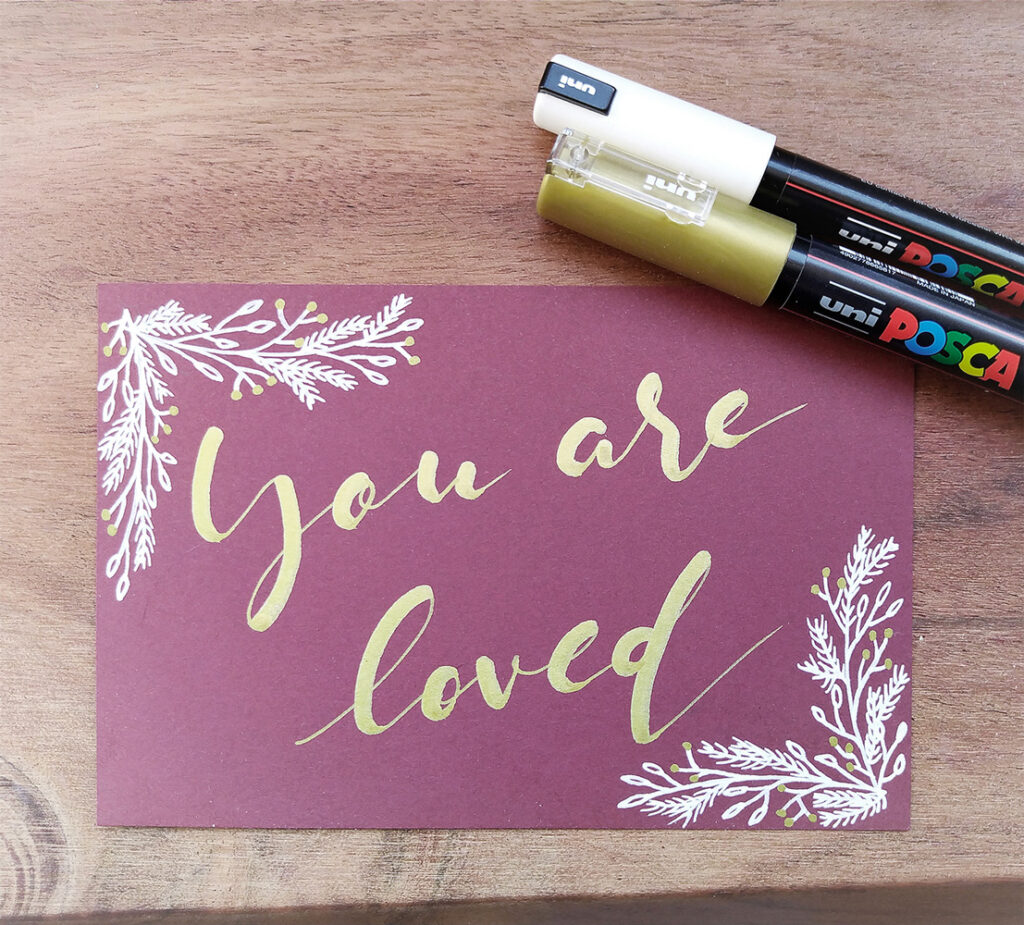 uni
uni
uni POSCA
4902778666817
MADE IN JAPAN
uni POSCA
You are
loved